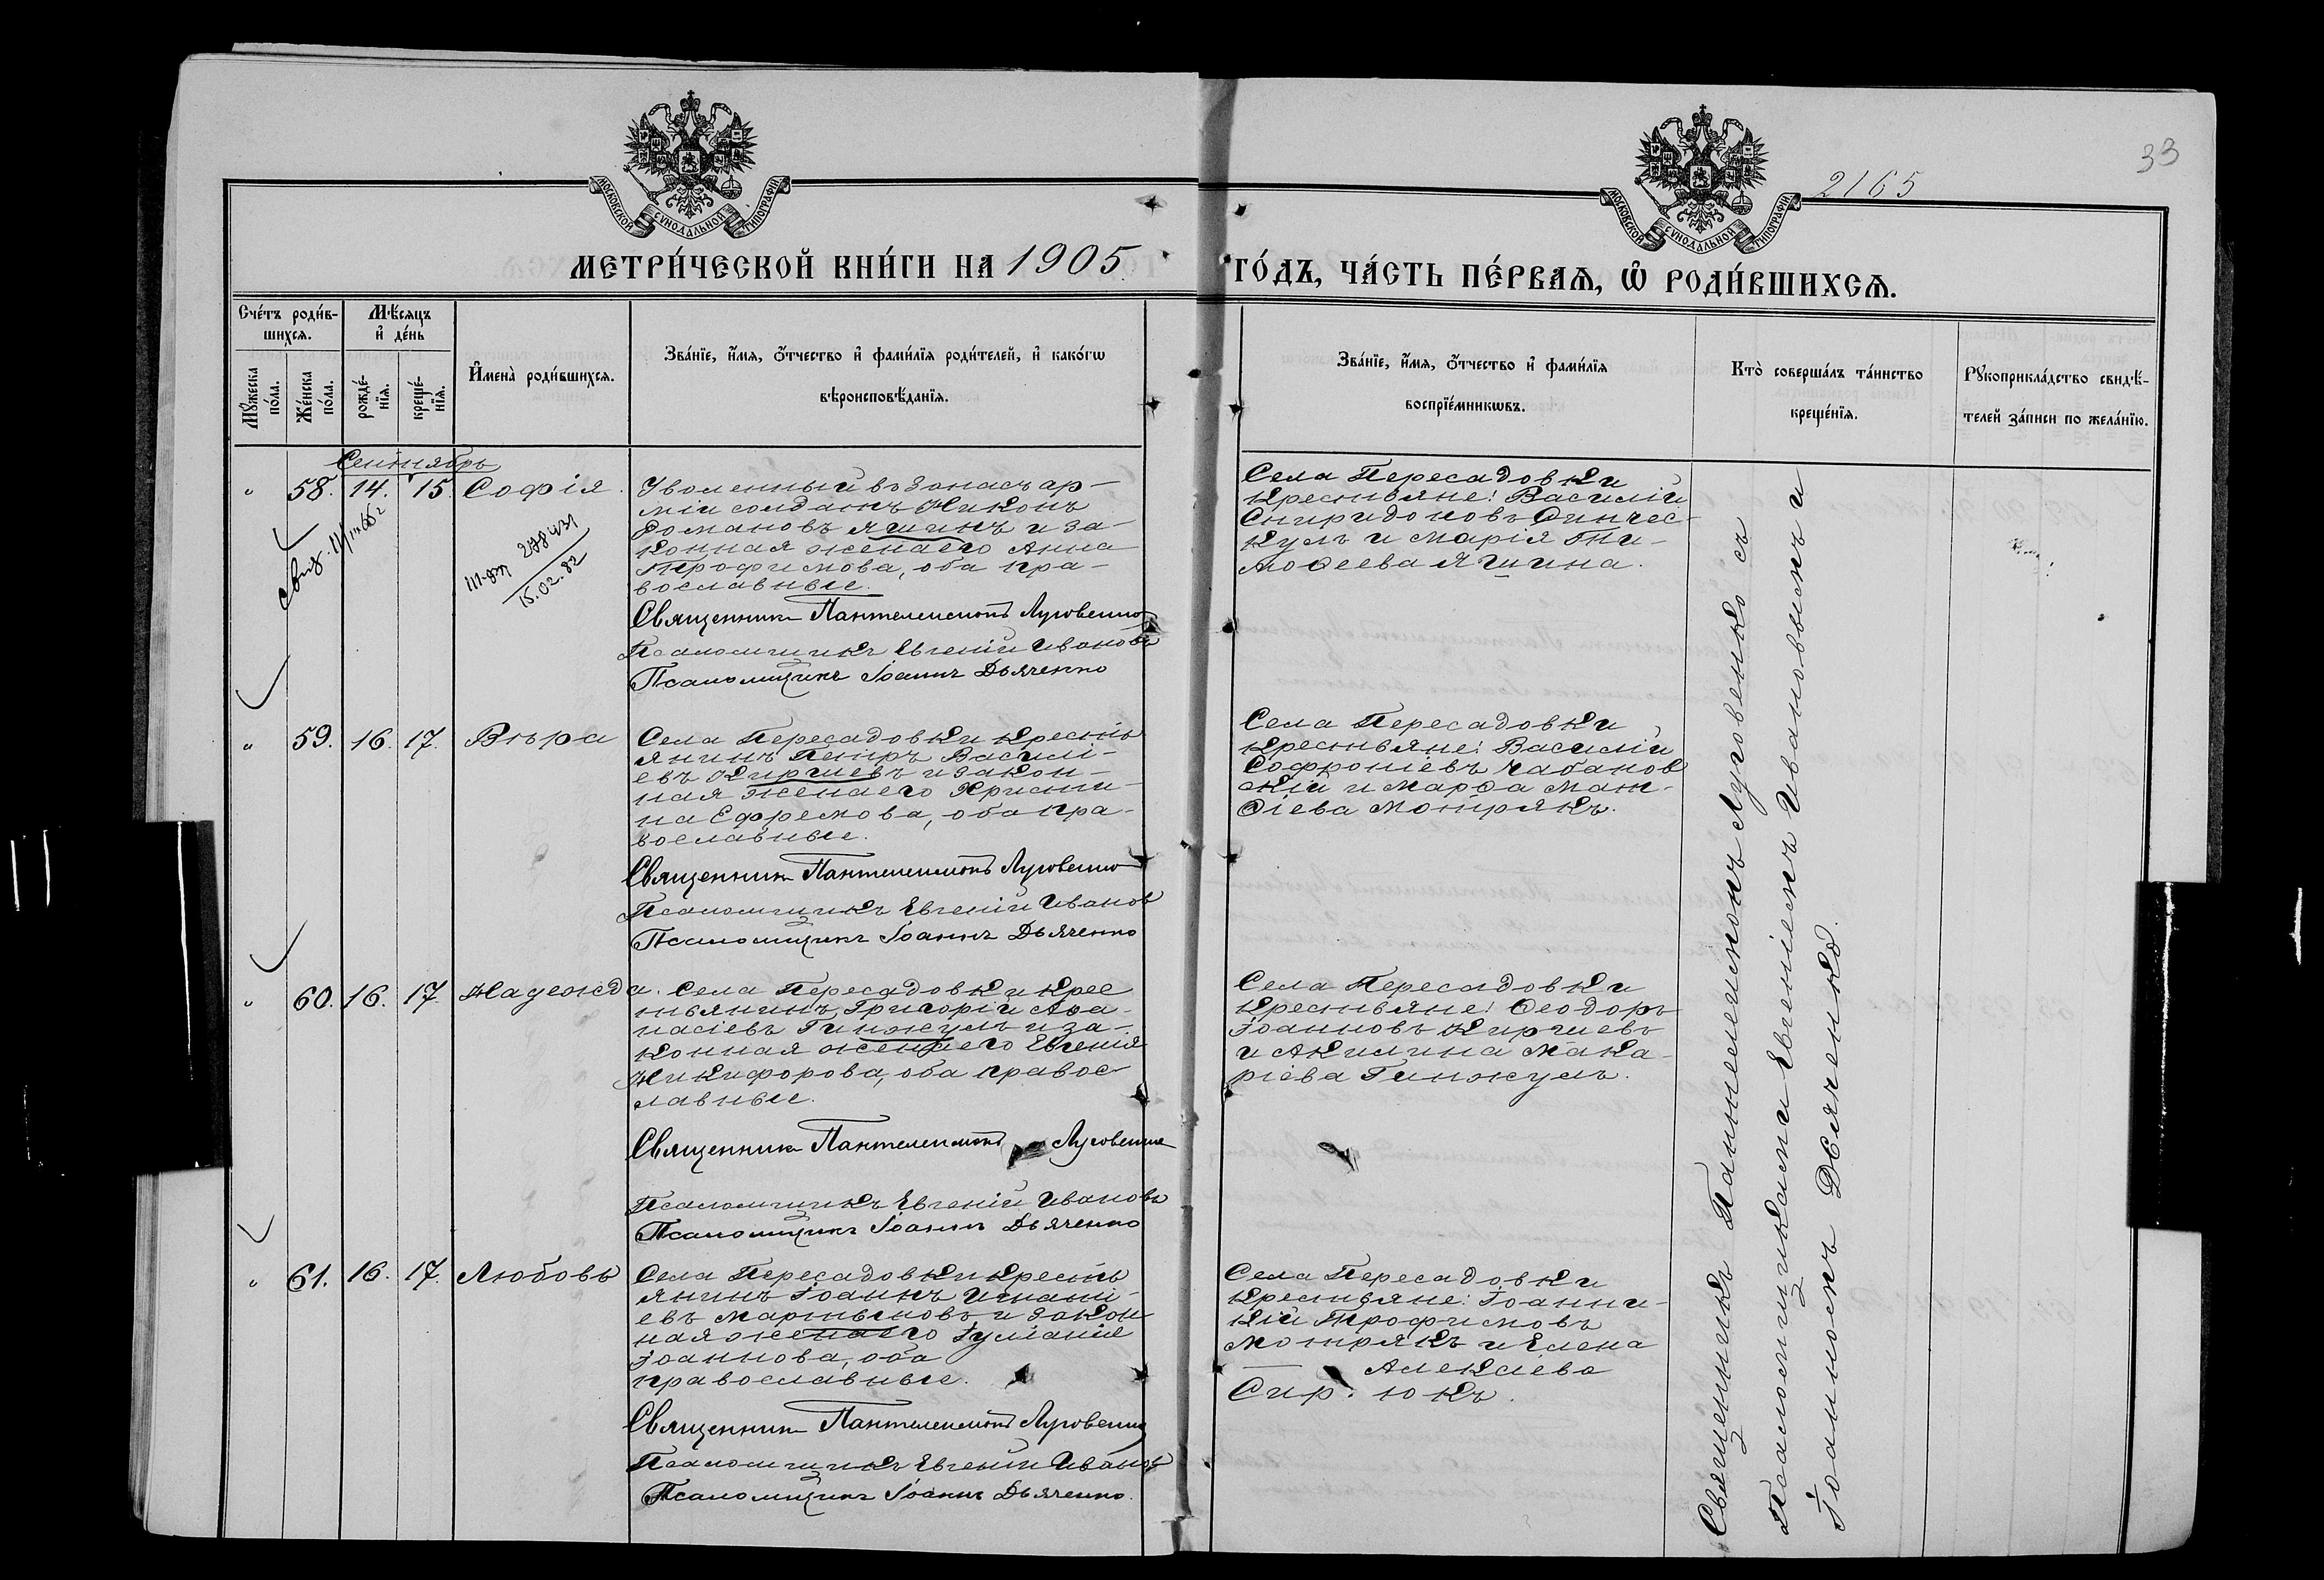 33
2165
МОСКОВСКОЙ СѴНОДАЛЬНОЙ ТИПОГРАФІИ
МОСКОВСКОЙ СѴНОДАЛЬНОЙ ТИПОГРАФІИ
МЕТРИ́ЧЕСКОЙ КНИ́ГИ НА 1905 ГО́ДЪ, ЧА́СТЬ ПЕ́РВАѦ, Ѡ҆ РОДИ́ВШИХСѦ.
Сче́тъ роди́в-
шихсѧ.
Мꙋ́жеска
по́ла.
Же́нска
по́ла.
Мѣ́сѧцъ
и҆ де́нь
рожде́-
нїѧ.
креще́-
нїѧ.
И҆мена̀ роди́вшихсѧ.
Зва́нїе, и҆́мѧ, ѻ҆́тчество и҆ фами́лїѧ роди́телей, и҆ како́гѡ
вѣроисповѣ́данїѧ.
Зва́нїе, и҆́мѧ, ѻ҆́тчество и҆ фами́лїѧ
воспрїе́мникѡвъ.
Кто̀ соверша́лъ та́инство
креще́нїѧ.
Рꙋкоприкла́дство свидѣ́-
телей за́писи по жела́нїю.
Сентябрь
" 58. 14. 15. Софія.
Уволенный въ запасъ ар-
міи солдатъ Никонъ
Романовъ Яшинъ и за-
конная жена его Анна
Трофимова, оба пра-
вославные.
Священникъ Пантелеимонъ Луговенко
Псаломщикъ Евгеній Ивановъ
Псаломщикъ Іоаннъ Дьяченко
15.02.82
Села Пересадовки
крестьяне: Василій
Спиридоновъ
кулъ и Марія Ти-
моѳеева Яшина.
" 59. 16. 17. Вѣра
Села Пересадовки кресть
янинъ Петръ Василі-
евъ Киргіевъ и закон-
ная жена его Христи-
на Ефремова, оба пра-
вославные.
Священникъ Пантелеимонъ Луговенко
Псаломщикъ Евгеній Ивановъ
Псаломщикъ Іоаннъ Дьяченко
Села Пересадовки
крестьяне: Василій
Софроніевъ Чабанов
скій и Марѳа Мат-
ѳіева Мотрякъ.
" 60. 16. 17. Надежда.
Села Пересадовки крес
тьянинъ Григорій Аѳа-
насіевъ Гинжулъ и за-
конная жена его Евгенія
Никифорова, оба правос-
лавные.
Священникъ Пантелеимонъ Луговенко
Псаломщикъ Евгеній Ивановъ
Псаломщикъ Іоаннъ Дьяченко
Села Пересадовки
крестьяне: Ѳеодоръ
Іоанновъ Киргіевъ
и Акилина Мака-
ріева Гинжулъ.
" 61. 16. 17. Любовь
Села Пересадовки кресть
янинъ Іоаннъ Игнаті-
евъ Мартыновъ и закон
ная жена его Іуліанія
Іоаннова, оба
православные.
Священникъ Пантелеимонъ Луговенко
Псаломщикъ Евгеній Ивановъ
Псаломщикъ Іоаннъ Дьяченко.
Села Пересадовки
крестьяне: Іоанни-
кій Трофимовъ
Мотрякъ и Елена
Алексіева
Священникъ Пантелеимонъ Луговенко съ
Псаломщиками Евгеніемъ Ивановымъ и
Іоанномъ Дьяченко.